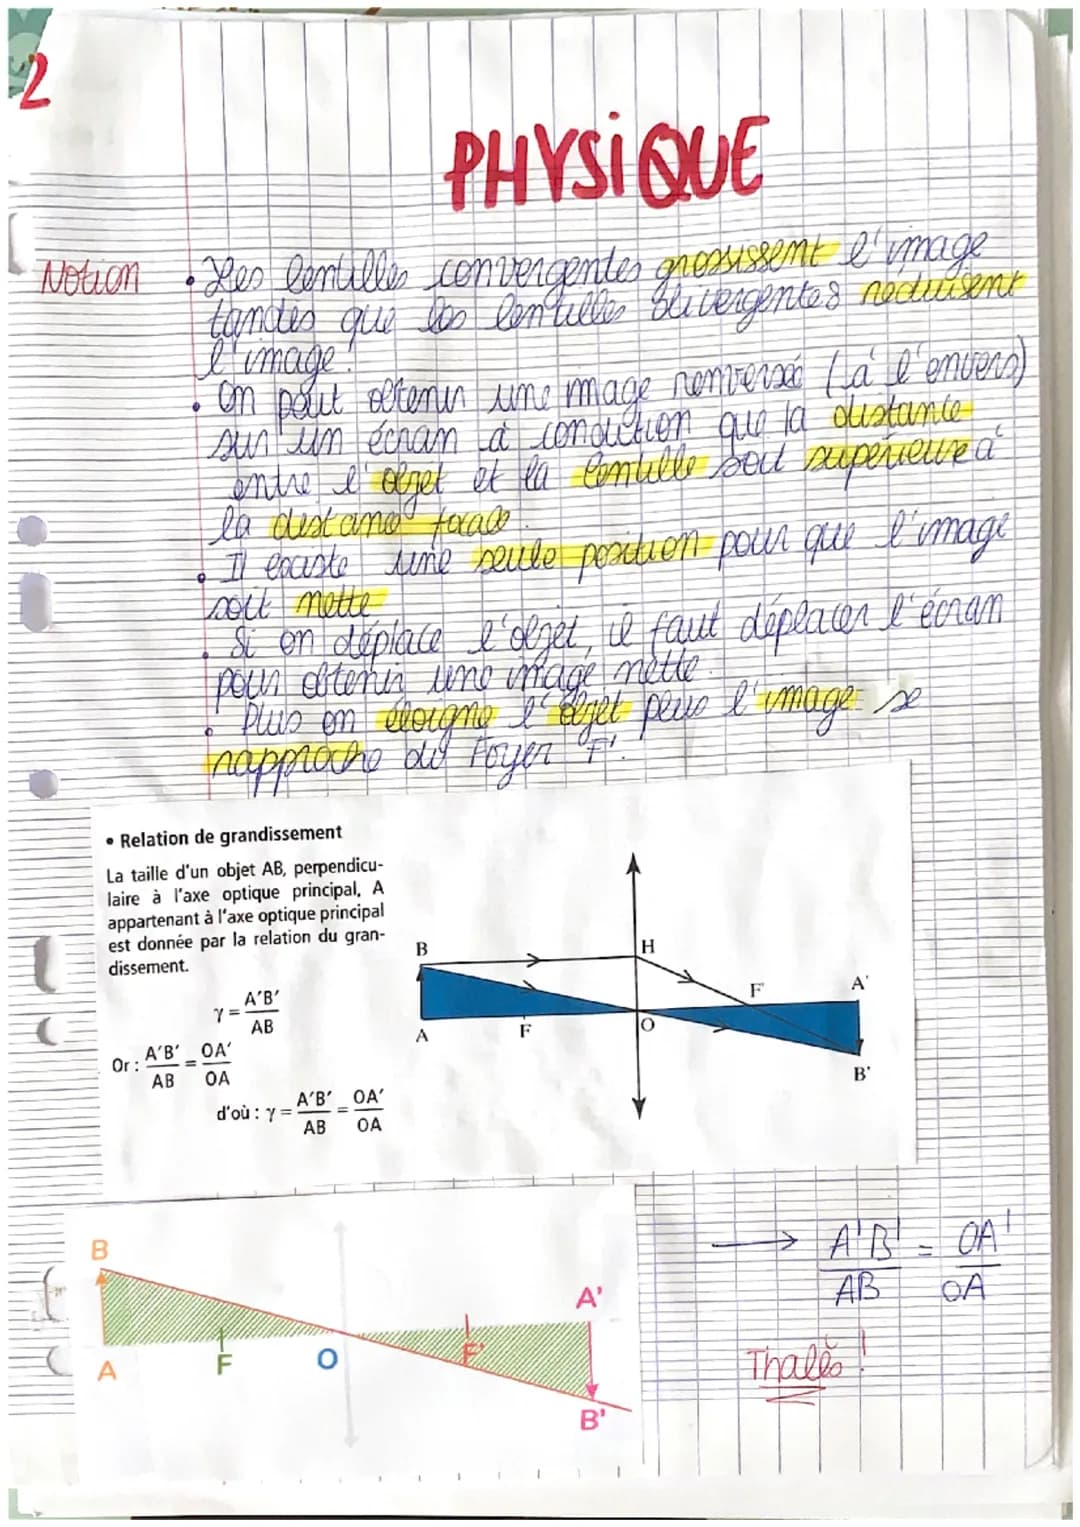 2
PHYSiQUE
Notion
• Les lentilles convergentes grossissent l'image
tandis que les lentilles divergentes réduisent
l'image.
• On peut obtenir une image renversée (à l'envers)
sur un écran à condition que la distance
entre l'objet et la lentille soit supérieure à
la distance focale.
• Il existe une seule position pour que l'image
soit nette
• Si on déplace l'objet, il faut déplacer l'écran
pour obtenir une image nette.
• Plus on éloigne l'objet plus l'image se
rapproche du Foyer F'.
• Relation de grandissement
La taille d'un objet AB, perpendicu-
laire à l'axe optique principal, A
appartenant à l'axe optique principal
est donnée par la relation du gran-
dissement.
γ = A'B' / AB
Or : A'B' / AB = OA' / OA
d'où : γ = A'B' / AB = OA' / OA
B
H
F'
A'
A
F
O
B'
B
A'
A
F
O
F'
B'
→ A'B' / AB = OA' / OA
Thalès !